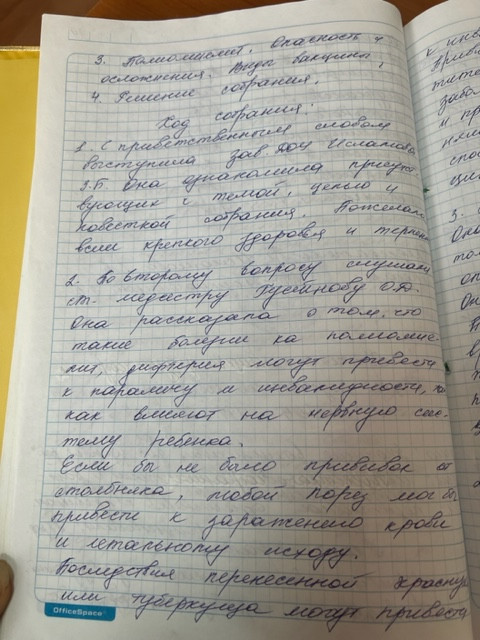 3. Полиомиелит. Опасность и
осложнения. Виды вакцины,
4. Решение собрания.
Ход собрания:
1. С приветственным словом
выступила зав. ДОУ Исламова
З.Б. Она ознакомила присутс
вующих с темой, целью и
повесткой собрания. Пожелала
всем крепкого здоровья и терпен
2. По второму вопросу слушали
ст. медсестру Гусейнову О.Ф.
Она рассказала о том, что
такие болезни ка полиомие-
лит, дифтерия могут привести
к параличу и инвалидности, та
как влияют на нервную сис-
тему ребенка.
Если бы не было прививок от
столбняка, любой порез мог бы
привести к заражению крови
и летальному исходу.
Последствия перенесенной краснух
или туберкулеза могут привести
OfficeSpace
к инв
Приви
тите
забол
и пр
ним
спос
ци
3. С
Она
Он